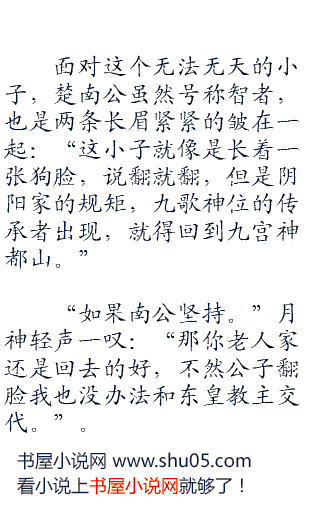 面对这个无法无天的小
子，楚南公虽然号称智者，
也是两条长眉紧紧的皱在一
起：“这小子就像是长着一
张狗脸，说翻就翻，但是阴
阳家的规矩，九歌神位的传
承者出现，就得回到九宫神
都山。”
“如果南公坚持。”月
神轻声一叹：“那你老人家
还是回去的好，不然公子翻
脸我也没办法和东皇教主交
代。”。
书屋小说网 www.shu05.com
看小说上书屋小说网就够了！